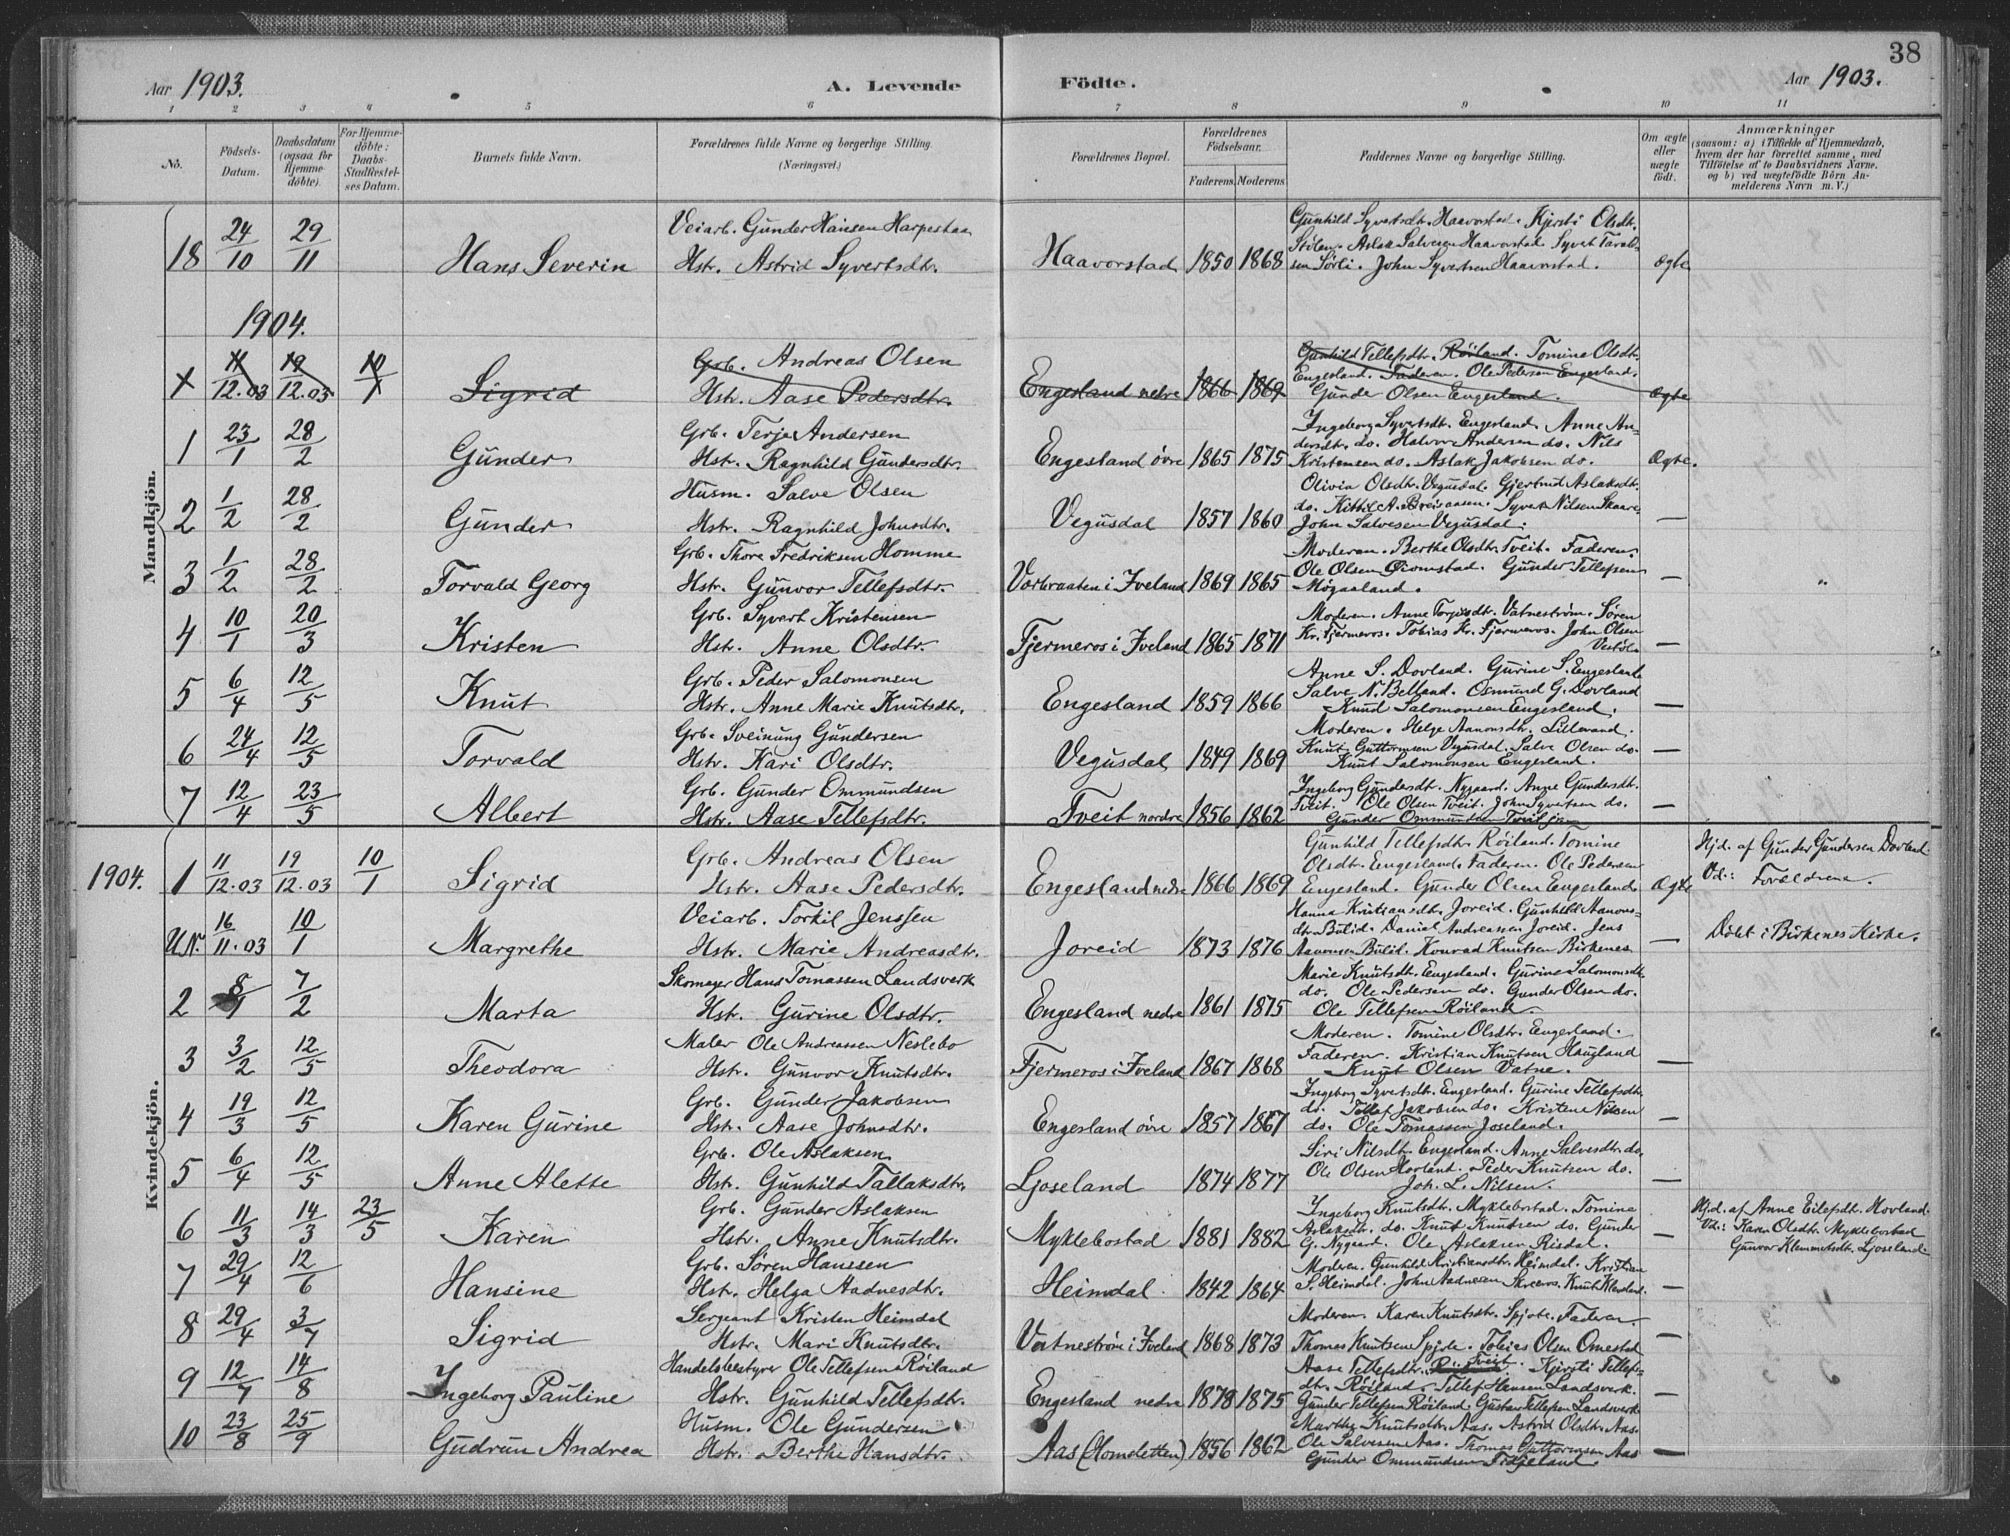 Aar 1903. A. Levende Födte. Aar 1903. 38
1 2 3 4 5 6 7 8 9 10 11
No. Födsels-Datum. Daabsdatum (ogsaa for Hjemmedöbte). For Hjemmedöbte: Daabs-Stadfæstelses Datum. Barnets fulde Navn. Forældrenes fulde Navne og borgerlige Stilling. (Næringsvei.) Forældrenes Bopæl. Forældrenes Födselsaar. Faderens. Moderens. Faddernes Navne og borgerlige Stilling. Om ægte eller uægte födt. Anmærkninger (saasom: a) i Tilfælde af Hjemmedaab, hvem der har forrettet samme, med Tilföielse af to Daabsvidners Navne. og b) ved uægtefödte Börn Anmelderens Navn m. V.)
Mandkjön.
18 24/10 29/11 Hans Severin Veiarb. Gunder Hansen Harpestaa Hstr. Astrid Syvertsdtr. Haavorstad 1850 1868 Gunhild Syvertsdtr. Haavorstad. Kjersti Olsdtr. Stölen. Aslak Salvesen Haavorstad Syvert Taraldsen Sörli. John Syvertsen Haavorstad. Ægte
1904.
x 11/12.03 19/12.03 10/1 Sigrid Grb. Andreas Olsen Hstr. Aase Pedersdtr. Engesland nedre 1866 1869 Gunhild Tellefsdtr. Röiland. Tomine Olsdtr. Engesland. Faderen. Ole Pedersen Engesland. Gunder Olsen Engesland. Ægte
1 23/1 28/2 Gunder Grb. Terje Andersen Hstr. Ragnhild Gundersdtr. Engesland övre 1865 1875 Ingeborg Syvertsdtr. Engesland. Anne Andersdtr. do. Halvor Andersen do. Nils Kristensen do. Aslak Jakobsen do. Ægte.
2 1/2 28/2 Gunder Husm. Salve Olsen Hstr. Ragnhild Johnsdtr. Vegusdal 1857 1860 Olivia Olsdtr. Vegusdal. Gjertrud Aslaksdtr. do. Kittil A. Breiaasen. Syvert Nilsen Skaare. John Salvesen Vegusdal. —
3 1/2 28/2 Torvald Georg Grb. Thore Fredriksen Homme Hstr. Gunvor Tellefsdtr. Vatbraaten i Iveland 1869 1865 Moderen. Berthe Olsdtr. Tveit. Faderen. Ole Olsen Gunder Tellefsen —
4 10/1 20/3 Kristen Grb. Syvert Kristensen Hstr. Anne Olsdtr. Fjermeros i Iveland 1865 1871 Moderen. Anne Torjusdtr. Vatneström. Sören Kr. Fjermeros. Tobias Kr. Fjermeros. John Olsen Vestöl. —
5 6/4 12/5 Knut Grb. Peder Salomonsen Hstr. Anne Marie Knutsdtr. Engesland 1859 1866 Anne S. Dovland. Gurine S. Engesland Salve N. Belland. Osmund G. Dovland Knud Salomonsen Engesland. —
6 24/4 12/5 Torvald Grb. Sveinung Gundersen Hstr. Kari Olsdtr. Vegusdal 1849 1869 Moderen. Helge Aanonsdtr. Lillevand. Knut Guttormsen Vegusdal. Salve Olsen do. Knut Salomonsen Engesland. —
7 12/4 23/5 Albert Grb. Gunder Ommundsen Hstr. Aase Tellefsdtr. Tveit nordre 1856 1862 Ingeborg Gundersdtr. Nygaard. Anne Gundersdtr. Tveit. Ole Olsen Tveit. John Syvertsen do. Gunder Ommundsen —
Kvindekjön.
1904. 1 11/12.03 19/12.03 10/1 Sigrid Grb. Andreas Olsen Hstr. Aase Pedersdtr. Engesland nedre 1866 1869 Gunhild Tellefsdtr. Röiland. Tomine Olsdtr. Engesland. Faderen. Ole Pedersen Engesland. Gunder Olsen Engesland Ægte Hjd. af Gunder Gundersen Dovland. Vd.: Forældrene.
U.N. 16/11.03 10/1 Margrethe Veiarb. Torkil Jenssen Hstr. Marie Andreasdtr. Joreid 1873 1876 Hanna Kristiansdtr. Joreid. Gunhild Aanonsdtr. Bulid. Daniel Andreassen Joreid. Jens Aanonsen Bulid. Konrad Knutsen Birkenes — Döbt i Birkenes Kirke.
2 8/1 7/2 Marta Skomager Hans Tomassen Landsverk Hstr. Gurine Olsdtr. Engesland nedre 1861 1875 Marie Knutsdtr. Engesland. Gurine Salomonsdtr. do. Ole Pedersen do. Gunder Olsen do. Ole Tellefsen Röiland.
3 3/2 12/5 Theodora Maler Ole Andreassen Neslebo Hstr. Gunvor Knutsdtr. Fjermeros i Iveland 1867 1868 Moderen. Tomine Olsdtr. Engesland. Faderen. Kristian Knutsen Haugland Knut Olsen Vatne. —
4 19/3 12/5 Karen Gurine Grb. Gunder Jakobsen Hstr. Aase Johnsdtr. Engesland övre 1857 1867 Ingeborg Syvertsdtr. Engesland. Gurine Tellefsdtr. do. Tellef Jakobsen do. Kristen Nilsen do. Ole Tomassen Joseland. —
5 6/4 12/5 Anne Alette Grb. Ole Aslaksen Hstr. Gunhild Tallaksdtr. Ljoseland 1874 1877 Siri Nilsdtr. Engesland. Anne Salvesdtr. do. Ole Olsen Hovland. Peder Knutsen do. Joh. L. Nilsen. —
6 11/3 14/3 23/5 Karen Grb. Gunder Aslaksen Hstr. Anne Knutsdtr. Myklebostad 1881 1882 Ingeborg Knutsdtr. Myklebostad. Tomine Aslaksdtr. do. Knut Knutsen do. Gunder G. Nygaard. Ole Aslaksen Risdal. — Hjd. af Anne Eilefsdtr. Hovland. Vd.: Karen Olsdtr. Myklebostad Gunvor Klemmetsdtr. Ljoseland.
7 29/4 12/6 Hansine Grb. Sören Hanssen Hstr. Helga Aadnesdtr. Heimdal. 1842 1864 Moderen. Gunhild Kristiansdtr. Heimdal. Kristian S. Heimdal. John Aadnesen Skreros. Knut —
8 29/4 3/7 Sigrid Sergeant Kristen Heimdal Hstr. Mari Knutsdtr. Vatneström i Iveland 1868 1873 Moderen. Karen Knutsdtr. Spjote. Faderen. Thomas Knutsen Spjote. Tobias Olsen Omestad —
9 12/7 14/8 Ingeborg Pauline Handelsbestyrer Ole Tellefsen Röiland Hstr. Gunhild Tellefsdtr. Engesland nedre 1878 1875 Aase Tellefsdtr. Tveit. Kjersti Tellefsdtr. Röiland. Tellef Hansen Landsverk. Gunder Tellefsen Röiland. Gustav Tellefsen Landsverk —
10 23/8 25/9 Gudrun Andrea Husm. Ole Gundersen Hstr. Berthe Hansdtr. Aas (Tomeletten) 1856 1862 Marthe Knutsdtr. Aas. Astrid Olsdtr. Aas. Ole Salvesen Aas. Thomas Guttormsen Aas Gunder Ommundsen Fidjeland. —